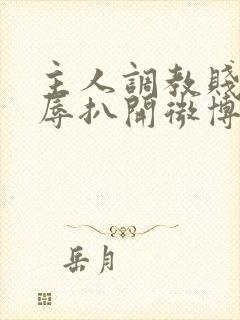 主人調教賤
辱扒開微博
岳月